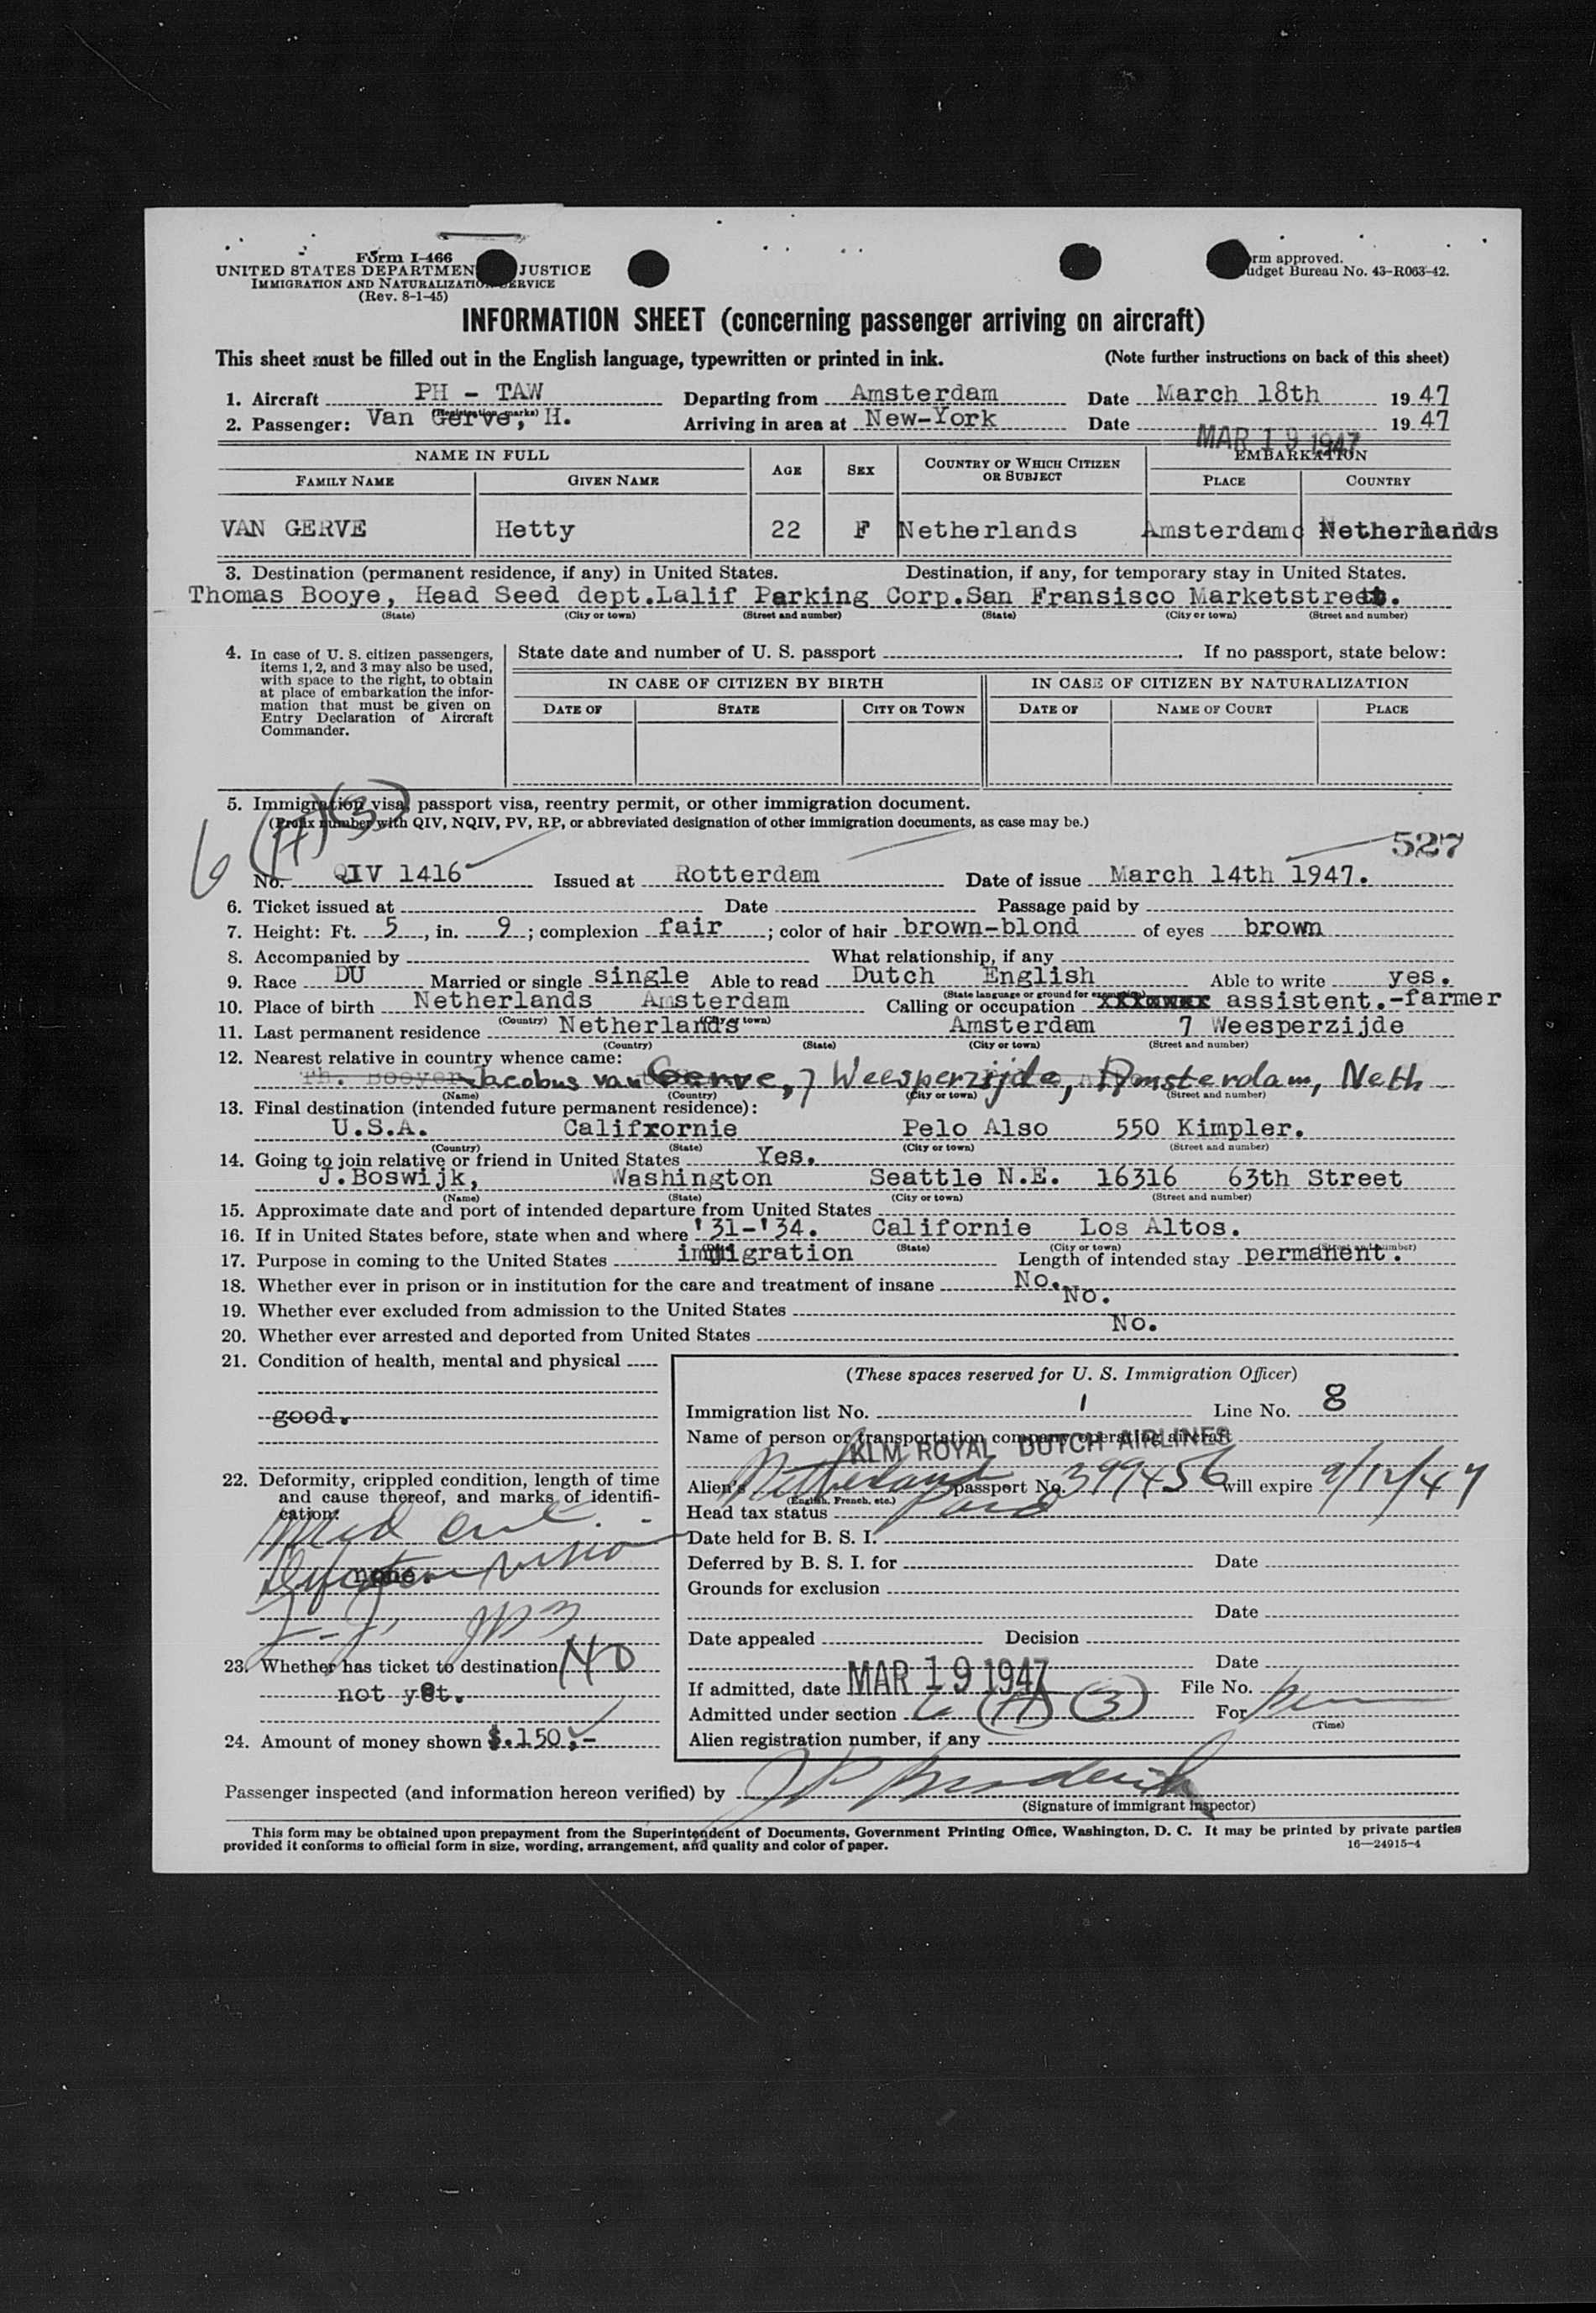 Form I-466
UNITED STATES DEPARTMEN JUSTICE
IMMIGRATION AND NATURALIZATION SERVICE
(Rev. 8-1-45)
rm approved.
udget Bureau No. 43-R063-42.
INFORMATION SHEET (concerning passenger arriving on aircraft)
This sheet must be filled out in the English language, typewritten or printed in ink. (Note further instructions on back of this sheet)
1. Aircraft PH - TAW Departing from Amsterdam Date March 18th 1947
(Registration marks)
2. Passenger: Van Gerve, H. Arriving in area at New-York Date MAR 19 1947 1947
NAME IN FULL AGE SEX COUNTRY OF WHICH CITIZEN OR SUBJECT EMBARKATION
FAMILY NAME GIVEN NAME PLACE COUNTRY
VAN GERVE Hetty 22 F Netherlands Amsterdam Netherlands
3. Destination (permanent residence, if any) in United States. Destination, if any, for temporary stay in United States.
Thomas Booye, Head Seed dept.Lalif Parking Corp.San Fransisco Marketstreet.
(State) (City or town) (Street and number) (State) (City or town) (Street and number)
4. In case of U. S. citizen passengers, items 1, 2, and 3 may also be used, with space to the right, to obtain at place of embarkation the information that must be given on Entry Declaration of Aircraft Commander.
State date and number of U. S. passport . If no passport, state below:
IN CASE OF CITIZEN BY BIRTH IN CASE OF CITIZEN BY NATURALIZATION
DATE OF STATE CITY OR TOWN DATE OF NAME OF COURT PLACE
5. Immigration visa, passport visa, reentry permit, or other immigration document.
(Prefix number with QIV, NQIV, PV, RP, or abbreviated designation of other immigration documents, as case may be.)
6 (A) (3)
527
No. QIV 1416 Issued at Rotterdam Date of issue March 14th 1947.
6. Ticket issued at Date Passage paid by
7. Height: Ft. 5, in. 9; complexion fair; color of hair brown-blond of eyes brown
8. Accompanied by What relationship, if any
9. Race DU Married or single single Able to read Dutch English Able to write yes.
(State language or ground for exemption)
10. Place of birth Netherlands Amsterdam Calling or occupation assistent.-farmer
(Country) (City or town)
11. Last permanent residence Netherlands Amsterdam 7 Weesperzijde
(Country) (State) (City or town) (Street and number)
12. Nearest relative in country whence came:
Th. Booyer Jacobus van Gerve, 7 Weesperzijde, Amsterdam, Neth
(Name) (Country) (City or town) (Street and number)
13. Final destination (intended future permanent residence):
U.S.A. Califrornie Pelo Also 550 Kimpler.
(Country) (State) (City or town) (Street and number)
14. Going to join relative or friend in United States Yes.
J.Boswijk, Washington Seattle N.E. 16316 63th Street
(Name) (State) (City or town) (Street and number)
15. Approximate date and port of intended departure from United States
16. If in United States before, state when and where '31-'34. Californie Los Altos.
(State) (City or town) (Street and number)
17. Purpose in coming to the United States immigration Length of intended stay permanent.
18. Whether ever in prison or in institution for the care and treatment of insane No.
19. Whether ever excluded from admission to the United States No.
20. Whether ever arrested and deported from United States No.
21. Condition of health, mental and physical
good.
22. Deformity, crippled condition, length of time and cause thereof, and marks of identification:
Med cert.
Defective vision
none.
23. Whether has ticket to destination NO
not yet.
24. Amount of money shown $.150,-
(These spaces reserved for U. S. Immigration Officer)
Immigration list No. 1 Line No. 8
Name of person or transportation company operating aircraft
KLM ROYAL DUTCH AIRLINES
Alien's Netherland passport No. 399456 will expire 9/12/47
(English, French, etc.)
Head tax status Paid
Date held for B. S. I.
Deferred by B. S. I. for Date
Grounds for exclusion
Date
Date appealed Decision
Date
If admitted, date MAR 19 1947 File No.
Admitted under section 6 (A) (3) For
(Time)
Alien registration number, if any
Passenger inspected (and information hereon verified) by J P Broderick
(Signature of immigrant inspector)
This form may be obtained upon prepayment from the Superintendent of Documents, Government Printing Office, Washington, D. C. It may be printed by private parties
provided it conforms to official form in size, wording, arrangement, and quality and color of paper. 16—24915-4